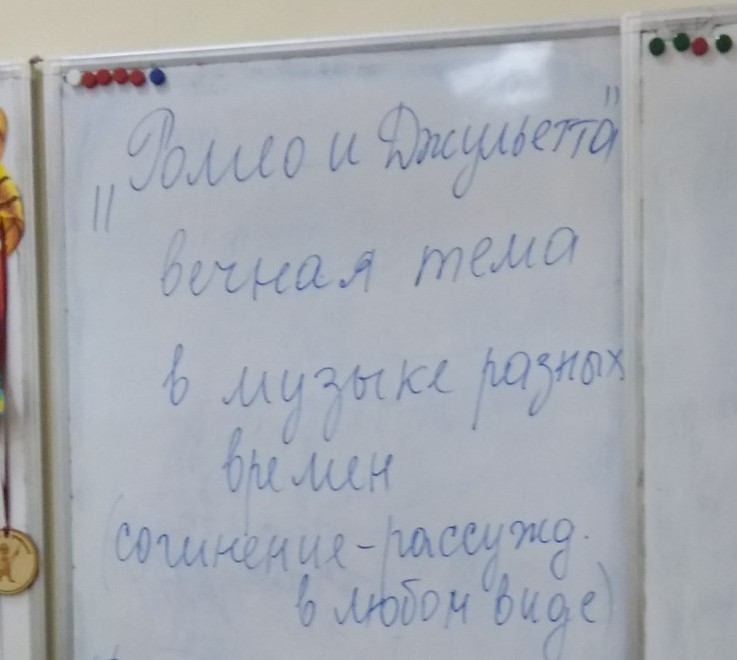 „Ромео и Джульетта"
вечная тема
в музыке разных
времен
(сочинение-рассужд.
в любом виде)